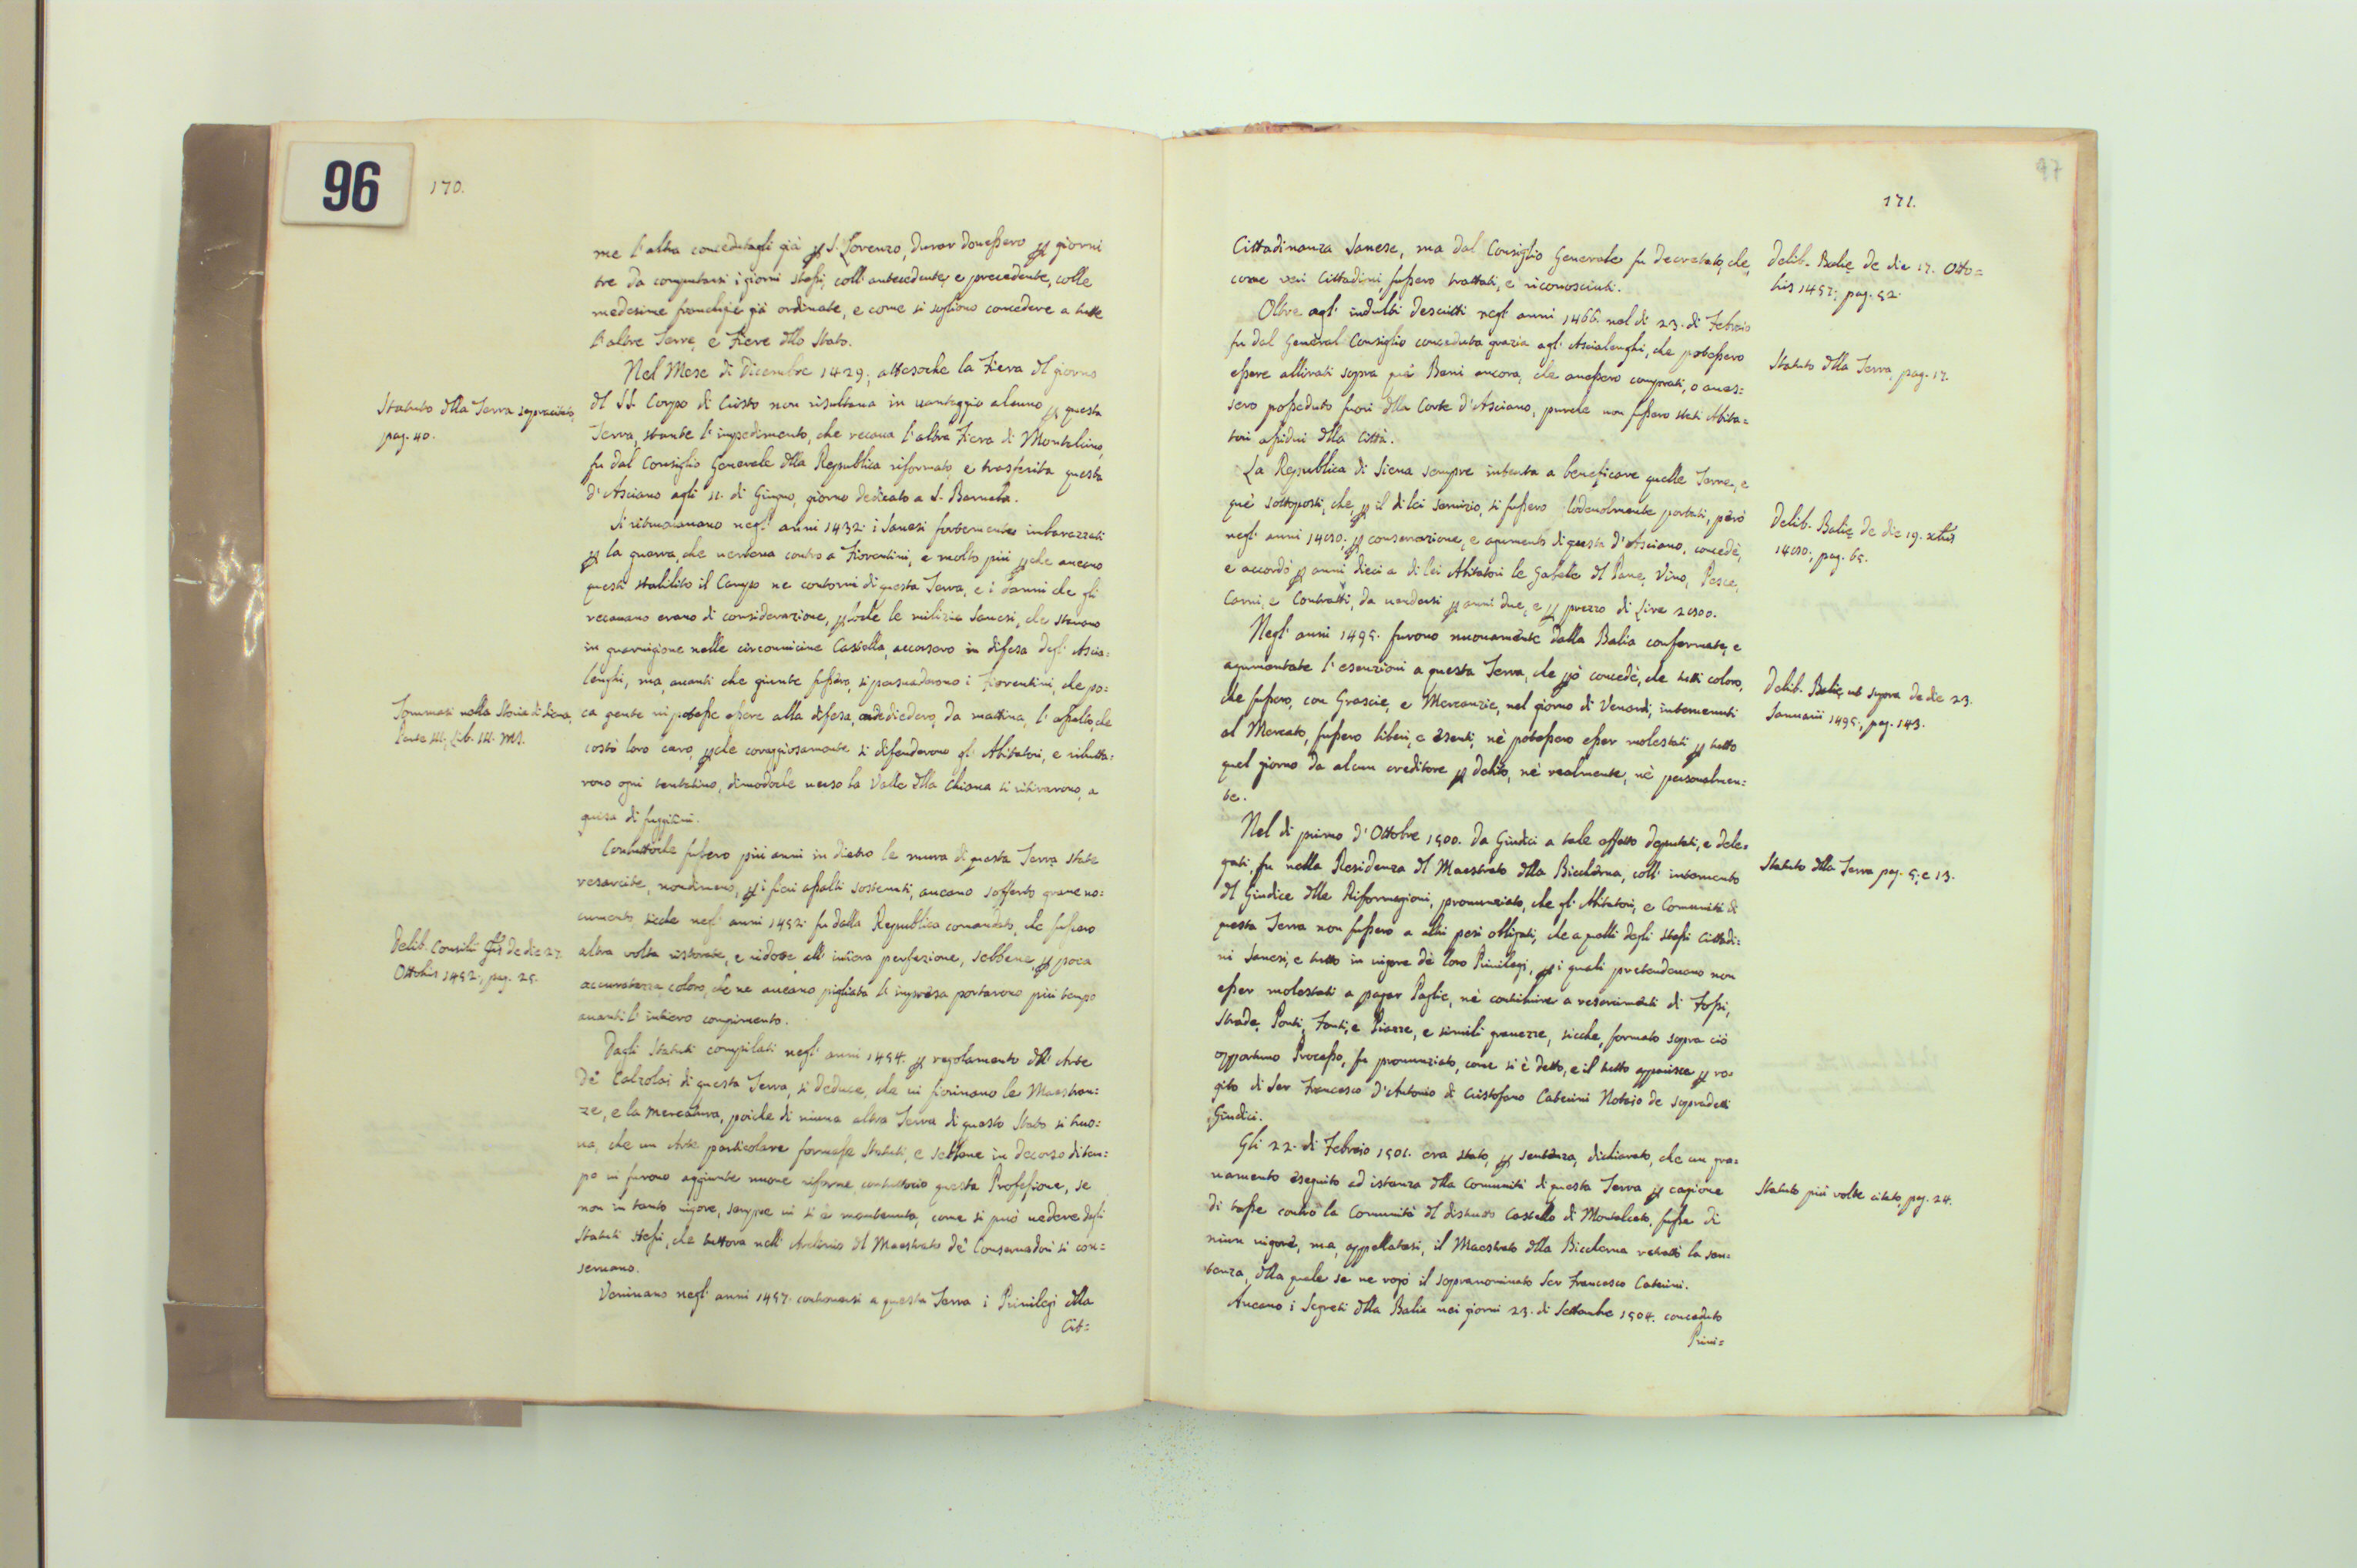 96
170.
me l'altra concedutagli già p S. Lorenzo, durar douessero p giorni
tre da computarsi i giorni stessi, coll'antecedente, e precedente, colle
medesime franchigie già ordinate, e come si sogliono concedere a tutte
l'altre Terre, e Fiere dlla Stato.
Nel Mese di Dicembre 1429, attesoche la Fiera dl giorno
dl SS. Corpo di Cristo non risultaua in uantaggio alcuno p questa
Terra, stante l'impedimento, che recaua l'altra Fiera di Montalcino,
fu dal Consiglio Generale dlla Republica riformato, e trasferita questa
d'Asciano agli 11. di Giugno, giorno dedicato a S. Barnaba.
Statuto dlla Terra sopracitato,
pag. 40.
Si ritrouauano negl'anni 1432. i Sanesi fortemente imbarazzati
p la guerra, che uerteua contro a Fiorentini, e molto più pche aueano
questi stabilito il Campo ne contorni di questa Terra, e i danni che gli
recauano erano di considerazione, ploche le milizie Sanesi, che stauano
in guarnigione nelle circonuicine Castella, accorsero in difesa degl'Ascia=
lenghi, ma, auanti che giunte fussero, si persuaderono i Fiorentini, che po=
ca gente ui potesse essere alla difesa, onde diedero, da mattina, l'assalto, che
costò loro caro, pche coraggiosamente si difenderono gl'Abitatori, e ributta=
rono ogni tentatiuo, dimodoche uerso la Valle dlla Chiana si ritirarono, a
guisa di fuggitiui.
Tommasi nella Storia di Siena,
Parte III, Lib. III. MS.
Contuttoche fussero più anni in dietro le mura di questa Terra state
resarcite, nondimeno, p i fieri assalti sostenuti, aueano sofferto graue no=
cumento, sicche negl'anni 1452. fu dalla Republica comandato, che fussero
altra volta ristorate, e ridotte all'intiera perfezione, sebbene, p poca
accuratezza coloro, che ne aueano pigliata l'impresa portarono più tempo
auanti l'intiero compimento.
Delib. Consilii Glis de die 27.
Ottobris 1452, pag. 25.
Dagli Statuti compilati negl'anni 1454. p regolamento dll'Arte
de' Calzolai di questa Terra, si deduce, che ui fioriuano le Maestran=
ze, e la mercatura, poiche di niuna altra Terra di questo Stato si truo=
ua, che un Arte particolare formasse Statuti, e sebbene in decorso di tem=
po ui furono aggiunte nuoue riforme, contuttociò questa Professione, se
non in tanto uigore, sempre ui si è mantenuta, come si può uedere dagli
Statuti stessi, che tuttora nell'Archiuio dl Maestrato de' Conseruadori si con=
seruano.
Veniuano negl'anni 1457. a questa Terra i Priuilegi dlla
Cit=
97
171.
Cittadinanza Sanese, ma dal Consiglio Generale fu decretato, che,
come veri Cittadini, fussero trattati, e riconosciuti.
Delib. Balię de die 17. Otto=
bris 1457, pag. 52.
Oltre agl'indulti descritti negl'anni 1466. nel dì 23. di Febraio
fu dal General Consiglio conceduta grazia agl'Ascialenghi, che potessero
essere allirati sopra quei Beni ancora, che auessero comprati, o aues=
sero posseduto fuori dlla Corte d'Asciano, purche non fussero stati Abita=
tori assidui dlla Città.
Statuto dlla Terra, pag. 17.
La Republica di Siena sempre intenta a beneficare quelle Terre, e
que' sottoposti, che, p il di lei seruizio, si fussero lodeuolmente portati, però
negl'anni 1480, p conseruazione, e augumento di questa d'Asciano, concedè,
e accordò p anni dieci a di lei Abitatori le Gabelle dl Pane, Vino, Pesce,
Carni, e Contratti, da uendersi p anni due, e p prezzo di Lire 2800.
Delib. Balię de die 19. xbris
1480, pag. 65.
Negl'anni 1495. furono nuouamente dalla Balia confermate, e
augumentate l'esenzioni a questa Terra, che pò concedè, che tutti coloro,
che fussero, con Grascie, e Mercanzie, nel giorno di Venerdì, interuenuti
al Mercato, fussero liberi, e esenti, nè potessero esser molestati p tutto
quel giorno da alcun creditore p debito, nè realmente, nè personalmen=
te.
Delib. Balię ut supra de die 23.
Januarii 1495, pag. 143.
Nel dì primo d'Ottobre 1500. da Giudici a tale effetto deputati, e dele=
gati, fu nella Residenza dl Maestrato dlla Biccherna, coll'interuento
dl Giudice dlle Riformagioni, pronunziato, che gl'Abitatori, e Comunità di
questa Terra non fussero a altri pesi obligati, che a quelli degli stessi Cittadi=
ni Sanesi, e tutto in uigore de' loro Priuilegi, p i quali pretendeuano non
esser molestati a pagar Paglie, nè contribuire a resarcimenti di Fossi,
Strade, Ponti, Fonti, e Piazze, e simili grauezze, sicche, formato sopra ciò
opportuno Processo, fu pronunziato, come si è detto, e il tutto apparisce p ro=
gito di Ser Francesco d'Antonio di Cristofano Caterini Notaio de sopradetti
Giudici.
Statuto dlla Terra pag. 5, e 13.
Gli 22. di Febraio 1501. era stato, p sentenza, dichiarato, che un gra=
uamento eseguito ad istanza dlla Comunità di questa Terra p cagione
di tasse contro la Comunità dl distrutto Castello di Montalceto, fusse di
niun uigore, ma, appellatasi, il Maestrato dlla Biccherna retrattò la sen=
tenza, dlla quale se ne rogò il sopranominato Ser Francesco Caterini.
Statuto più volte citato, pag. 24.
Aueano i Segreti dlla Balia nei giorni 23. di Settembre 1504. conceduto
Priui=